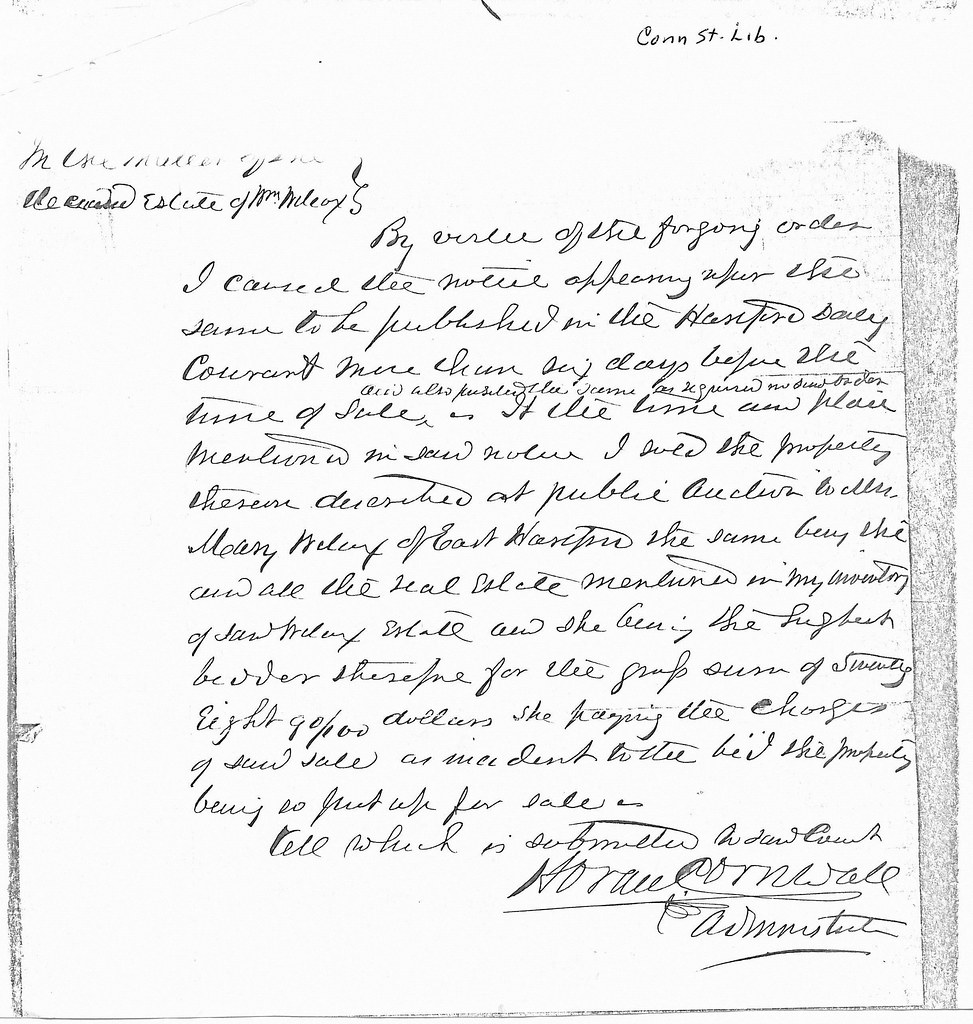 Conn St. Lib.
In the matter of the
deceased Estate of Wm Wilcox
By virtue of the forgoing order
I caused the notice appearing upon the
same to be published in the Hartford Daily
Courant more than six days before the
and also posted the same as required in said order
time of Sale, & At the time and place
mentioned in said notice I sold the property
therein described at public Auction to Mrs
Mary Wilcox of East Hartford the same being the
and all the real Estate mentioned in my inventory
of said Wilcox Estate and she being the highest
bidder therefor for the gross sum of Twenty
Eight 90/100 dollars she paying the charges
of said sale as incident to the bid the property
being so put up for sale
All which is submitted to said Court
Horace Cornwall
Administrator